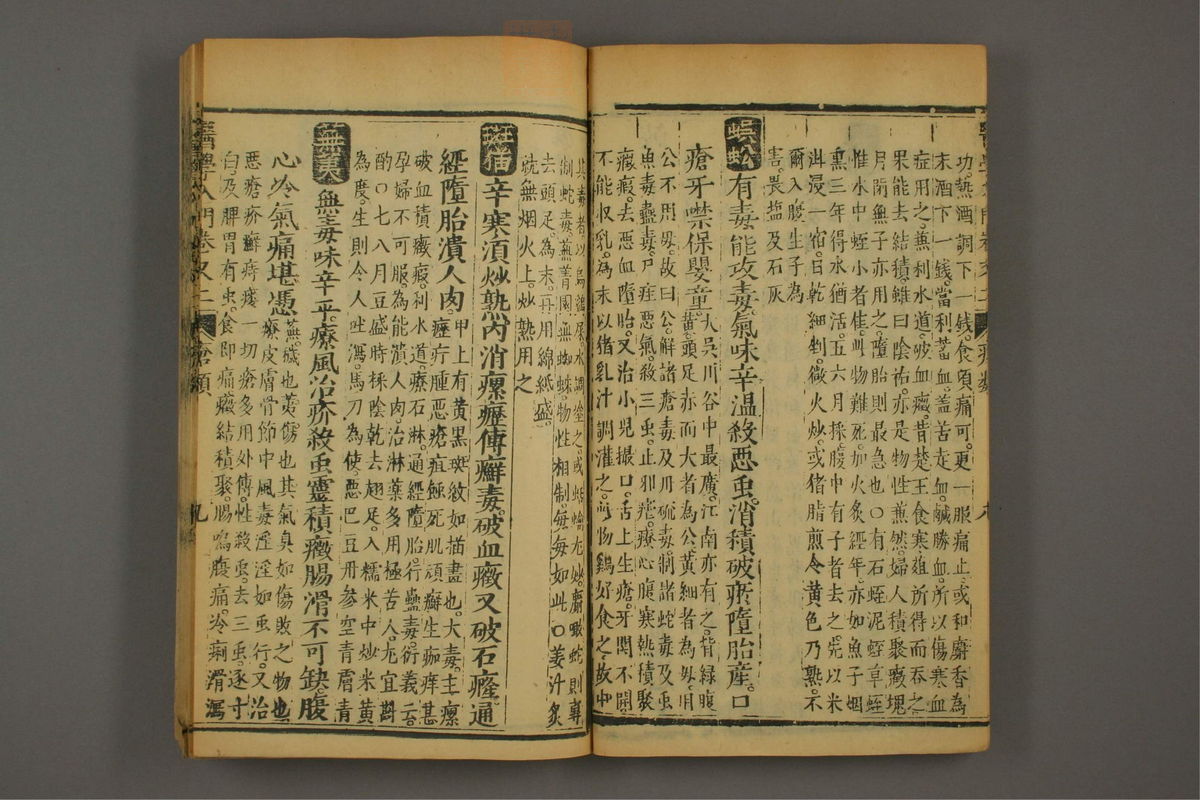 功熱酒調下一錢。食頃痛可。更一服痛止。或和麝香為
末酒下一錢。當利蓄血。蓋苦走血。鹹勝血。所以傷寒血
症用之。無利水道。破血癥。昔楚王食寒葅所得而吞之。
果能去結積。雖曰陰祐。亦是物性兼然。婦人積聚癥塊
月閉無子亦用之。墮胎則最急也○有石蛭泥蛭草蛭
惟水中蛭小者佳。此物難死。加火炙經年。亦如魚子烟
熏三年得水猶活。五六月採。腹中有子者去之。先以米
泔浸一宿。日乾細剉。微火炒。或猪脂煎令黃色乃熟。不
爾入腹生子為
害。畏鹽及石灰
蜈蚣 有毒能攻毒。氣味辛溫殺惡虫。消積破瘀墮胎產。口
瘡牙噤保嬰童。大吳川谷中最廣。江南亦有之。皆緑腹
黃頭足赤而大者為公。黃細者為母。用
公不用母。故曰公。解諸瘡毒及丹硫毒。制諸蛇毒及虫
魚毒蠱毒。尸疰惡氣。殺三虫。止邪瘧。療心腹寒熱積聚
癥瘕。去惡血墮胎。又治小兒撮口。舌上生瘡。牙関不開。
不能收乳。為末以猪乳汁調灌之。此物鷄好食之。故中
其毒者以烏鷄屎水調塗之。或蛞蝓尤妙。麝噉蛇則專
制蛇毒。蕪菁園無蜘蛛。物性相制。每每如此○姜汁炙
去頭足。為末。再用綿紙盛。
就無烟火上。炒熟用之
斑猫 辛寒須炒熟。內消瘰癧傅癬毒。破血癥又破石癃。通
經墮胎潰人肉。甲上有黃黑斑紋如描畫也。大毒。主瘰
癧疔腫惡瘡疽蝕死肌頑癬生瘀痒甚
破血積癥瘕。利水道。療石淋。通經墮胎。行蠱毒。衍義云。
孕婦不可服。為能潰人肉。治淋藥多用極苦人。尤宜斟
酌○七八月豆盛時採陰乾。去翅足。入糯米中炒米黃
為度。生則令人吐瀉。馬刀為使。惡巴豆丹參空青膚青
蕪荑 無毒味辛平。療風治疥殺虫靈。積癥腸滑不可缺。腹
心冷氣痛堪憑。蕪。穢也。荑。傷也。其氣臭如傷敗之物也
療皮膚骨節中風毒淫淫如虫行。又治
惡瘡疥癬痔瘻。一切瘡多用外傅。性殺虫。去三虫。逐寸
白。及脾胃有虫。食即痛。癥結積聚。腸鳴腹痛。冷痢滑瀉
醫學入門卷又二 瘡類 九